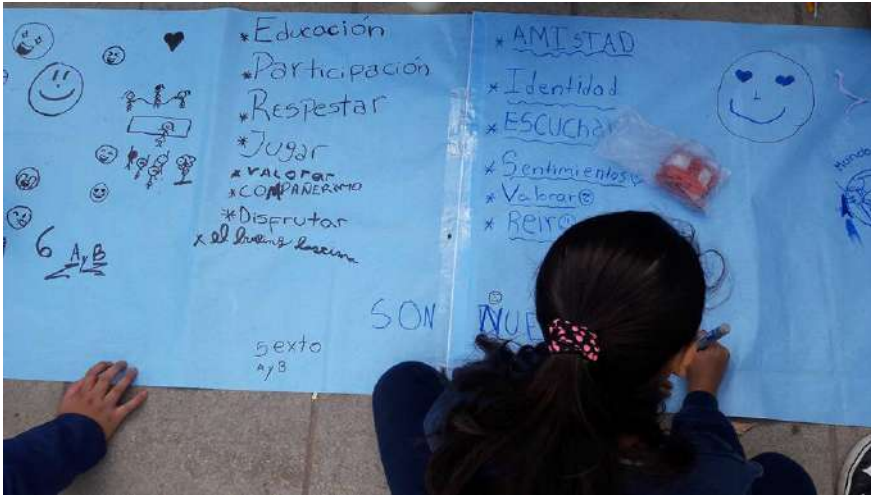 * Educación
* Participación
* Respestar
* Jugar
* VALORAR
* COMPAÑERIMO
* Disfrutar
x el
6 A y B
SON NUE
Sexto
A y B
* AMISTAD
* Identidad
* ESCUCHAR
* Sentimientos
* Valorar
* REIR
Mundo